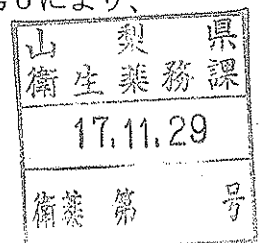 により、
山梨県
衛生薬務課
17.11.29
衛薬第 号